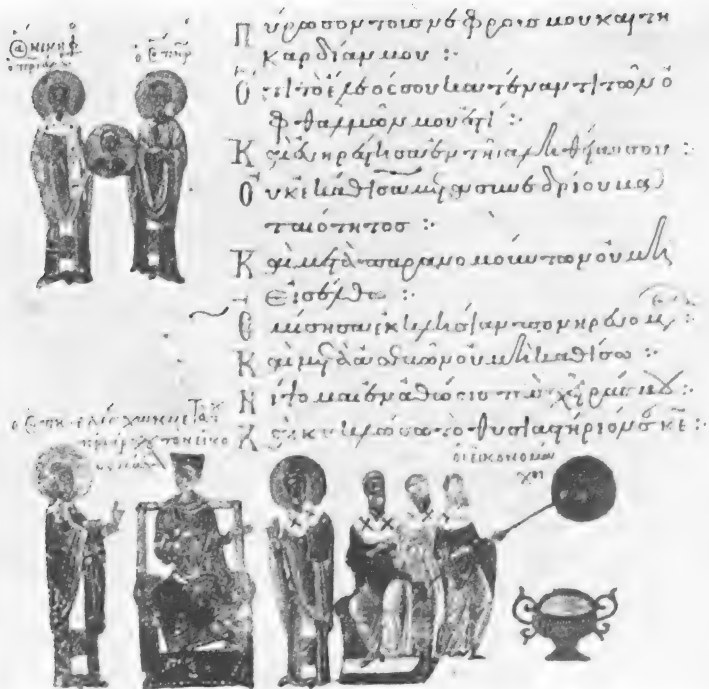 Πύρωσον τοὺς νεφρούς μου καὶ τὴν
καρδίαν μου :·
Ὅτι τὸ ἔλεός σου κατέναντι τῶν ὀ
φθαλμῶν μού ἐστι :·
Καὶ εὐηρέστησα ἐν τῇ ἀληθείᾳ σου :·
Οὐκ ἐκάθισα μετὰ συνεδρίου μα
ταιότητος :·
Καὶ μετὰ παρανομούντων οὐ μὴ
εἰσέλθω :·
Ἐμίσησα ἐκκλησίαν πονηρευομένων :·
Καὶ μετὰ ἀσεβῶν οὐ μὴ καθίσω :·
Νίψομαι ἐν ἀθώοις τὰς χεῖράς μου
Καὶ κυκλώσω τὸ θυσιαστήριόν σου κε :·
οἱ εἰκονομάχοι